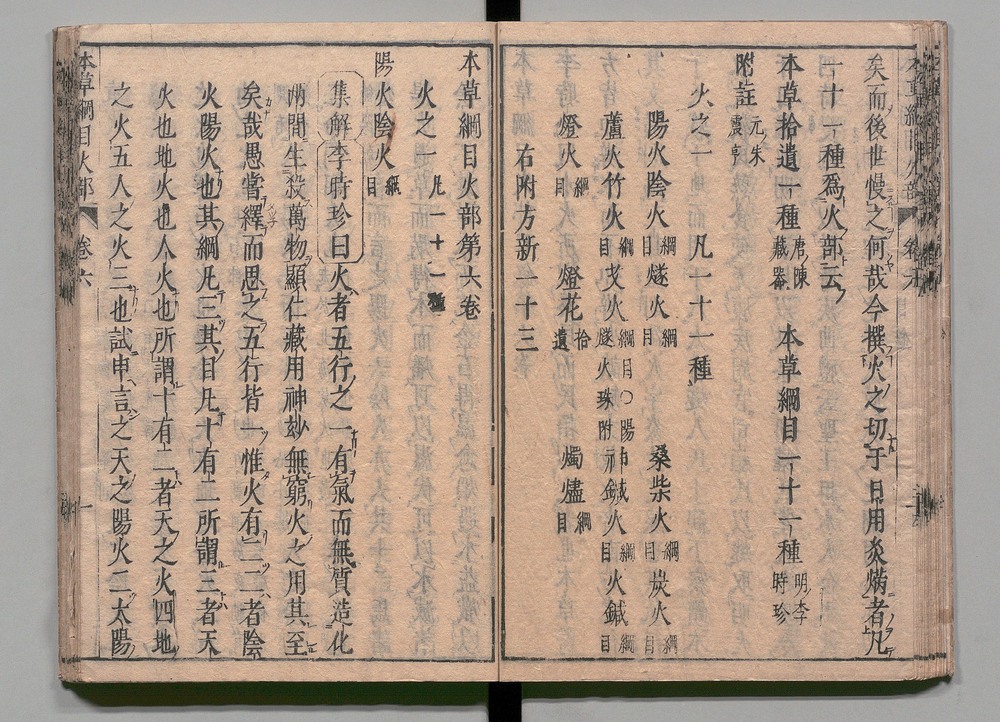 矣而後世慢之何哉今撰火之切于日用灸焫者凡
一十一種爲火部云
本草拾遺一種唐陳藏器 本草綱目一十一種明李時珍
附註元朱震亨
火之一 凡一十一種
陽火陰火綱目 燧火綱目 桑柴火綱目 炭火綱目
蘆火竹火綱目 艾火綱目○陽燧火珠附 神鍼火綱目 火鍼綱目
燈火綱目 燈花拾遺 燭燼綱目
右附方新一十三
本草綱目火部第六卷
火之一凡一十一種
陽火陰火綱目
集解李時珍曰火者五行之一有氣而無質造化
兩間生殺萬物顯仁藏用神妙無窮火之用其至
矣哉愚嘗繹而思之五行皆一惟火有二二者陰
火陽火也其綱凡三其目凡十有二所謂三者天
火也地火也人火也所謂十有二者天之火四地
之火五人之火三也試申言之天之陽火二太陽
本草綱目火部 卷六 一